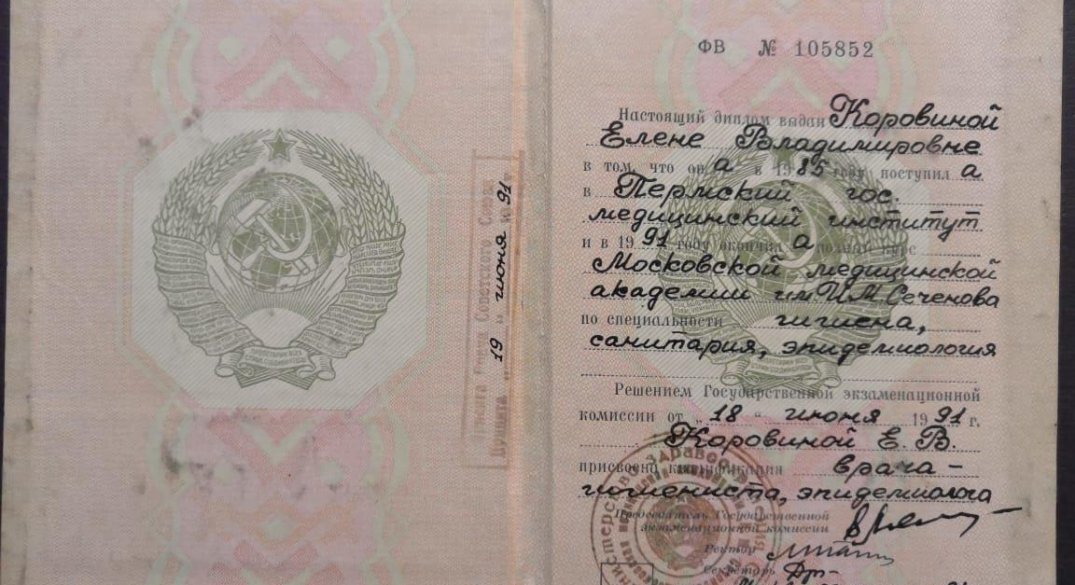 ФВ № 105852
Настоящий диплом выдан Коровиной
Елене Владимировне
в том, что он а в 1985 году поступил а
в Пермский гос.
медицинский институт
и в 1991 году окончил а полный курс
Московской медицинской
академии им И.М. Сеченова
по специальности гигиена,
санитария, эпидемиология
Решением Государственной экзаменационной
комиссии от „18“ июня 1991 г.
Коровиной Е. В.
присвоена квалификация врача-
гигиениста, эпидемиолога
Председатель Государственной
экзаменационной комиссии
Ректор
Секретарь
Присяга Советского
принята „19“ июня 1991